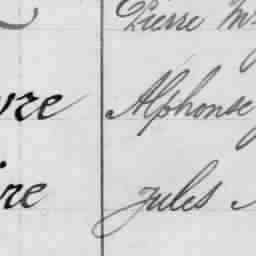 Pierre
vre Alphonse
ire Jules